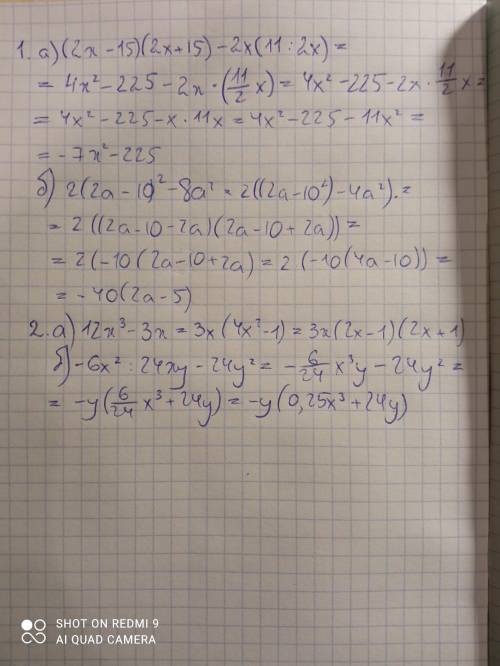 1. а) (2x - 15)(2x + 15) - 2x(11 : 2x) =
= 4x² - 225 - 2x · (11/2 x) = 4x² - 225 - 2x · 11/2 x =
= 4x² - 225 - x · 11x = 4x² - 225 - 11x² =
= - 7x² - 225
б) 2(2a - 10)² - 8a² = 2((2a - 10²) - 4a²) =
= 2((2a - 10 - 2a)(2a - 10 + 2a)) =
= 2(-10(2a - 10 + 2a) = 2 (-10(4a - 10)) =
= - 40(2a - 5)
2. а) 12x³ - 3x = 3x(4x² - 1) = 3x(2x - 1)(2x + 1)
б) - 6x² : 24xy - 24y² = - 6/24 x³y - 24y² =
= - y(6/24 x³ + 24y) = - y(0,25x³ + 24y)
SHOT ON REDMI 9
AI QUAD CAMERA